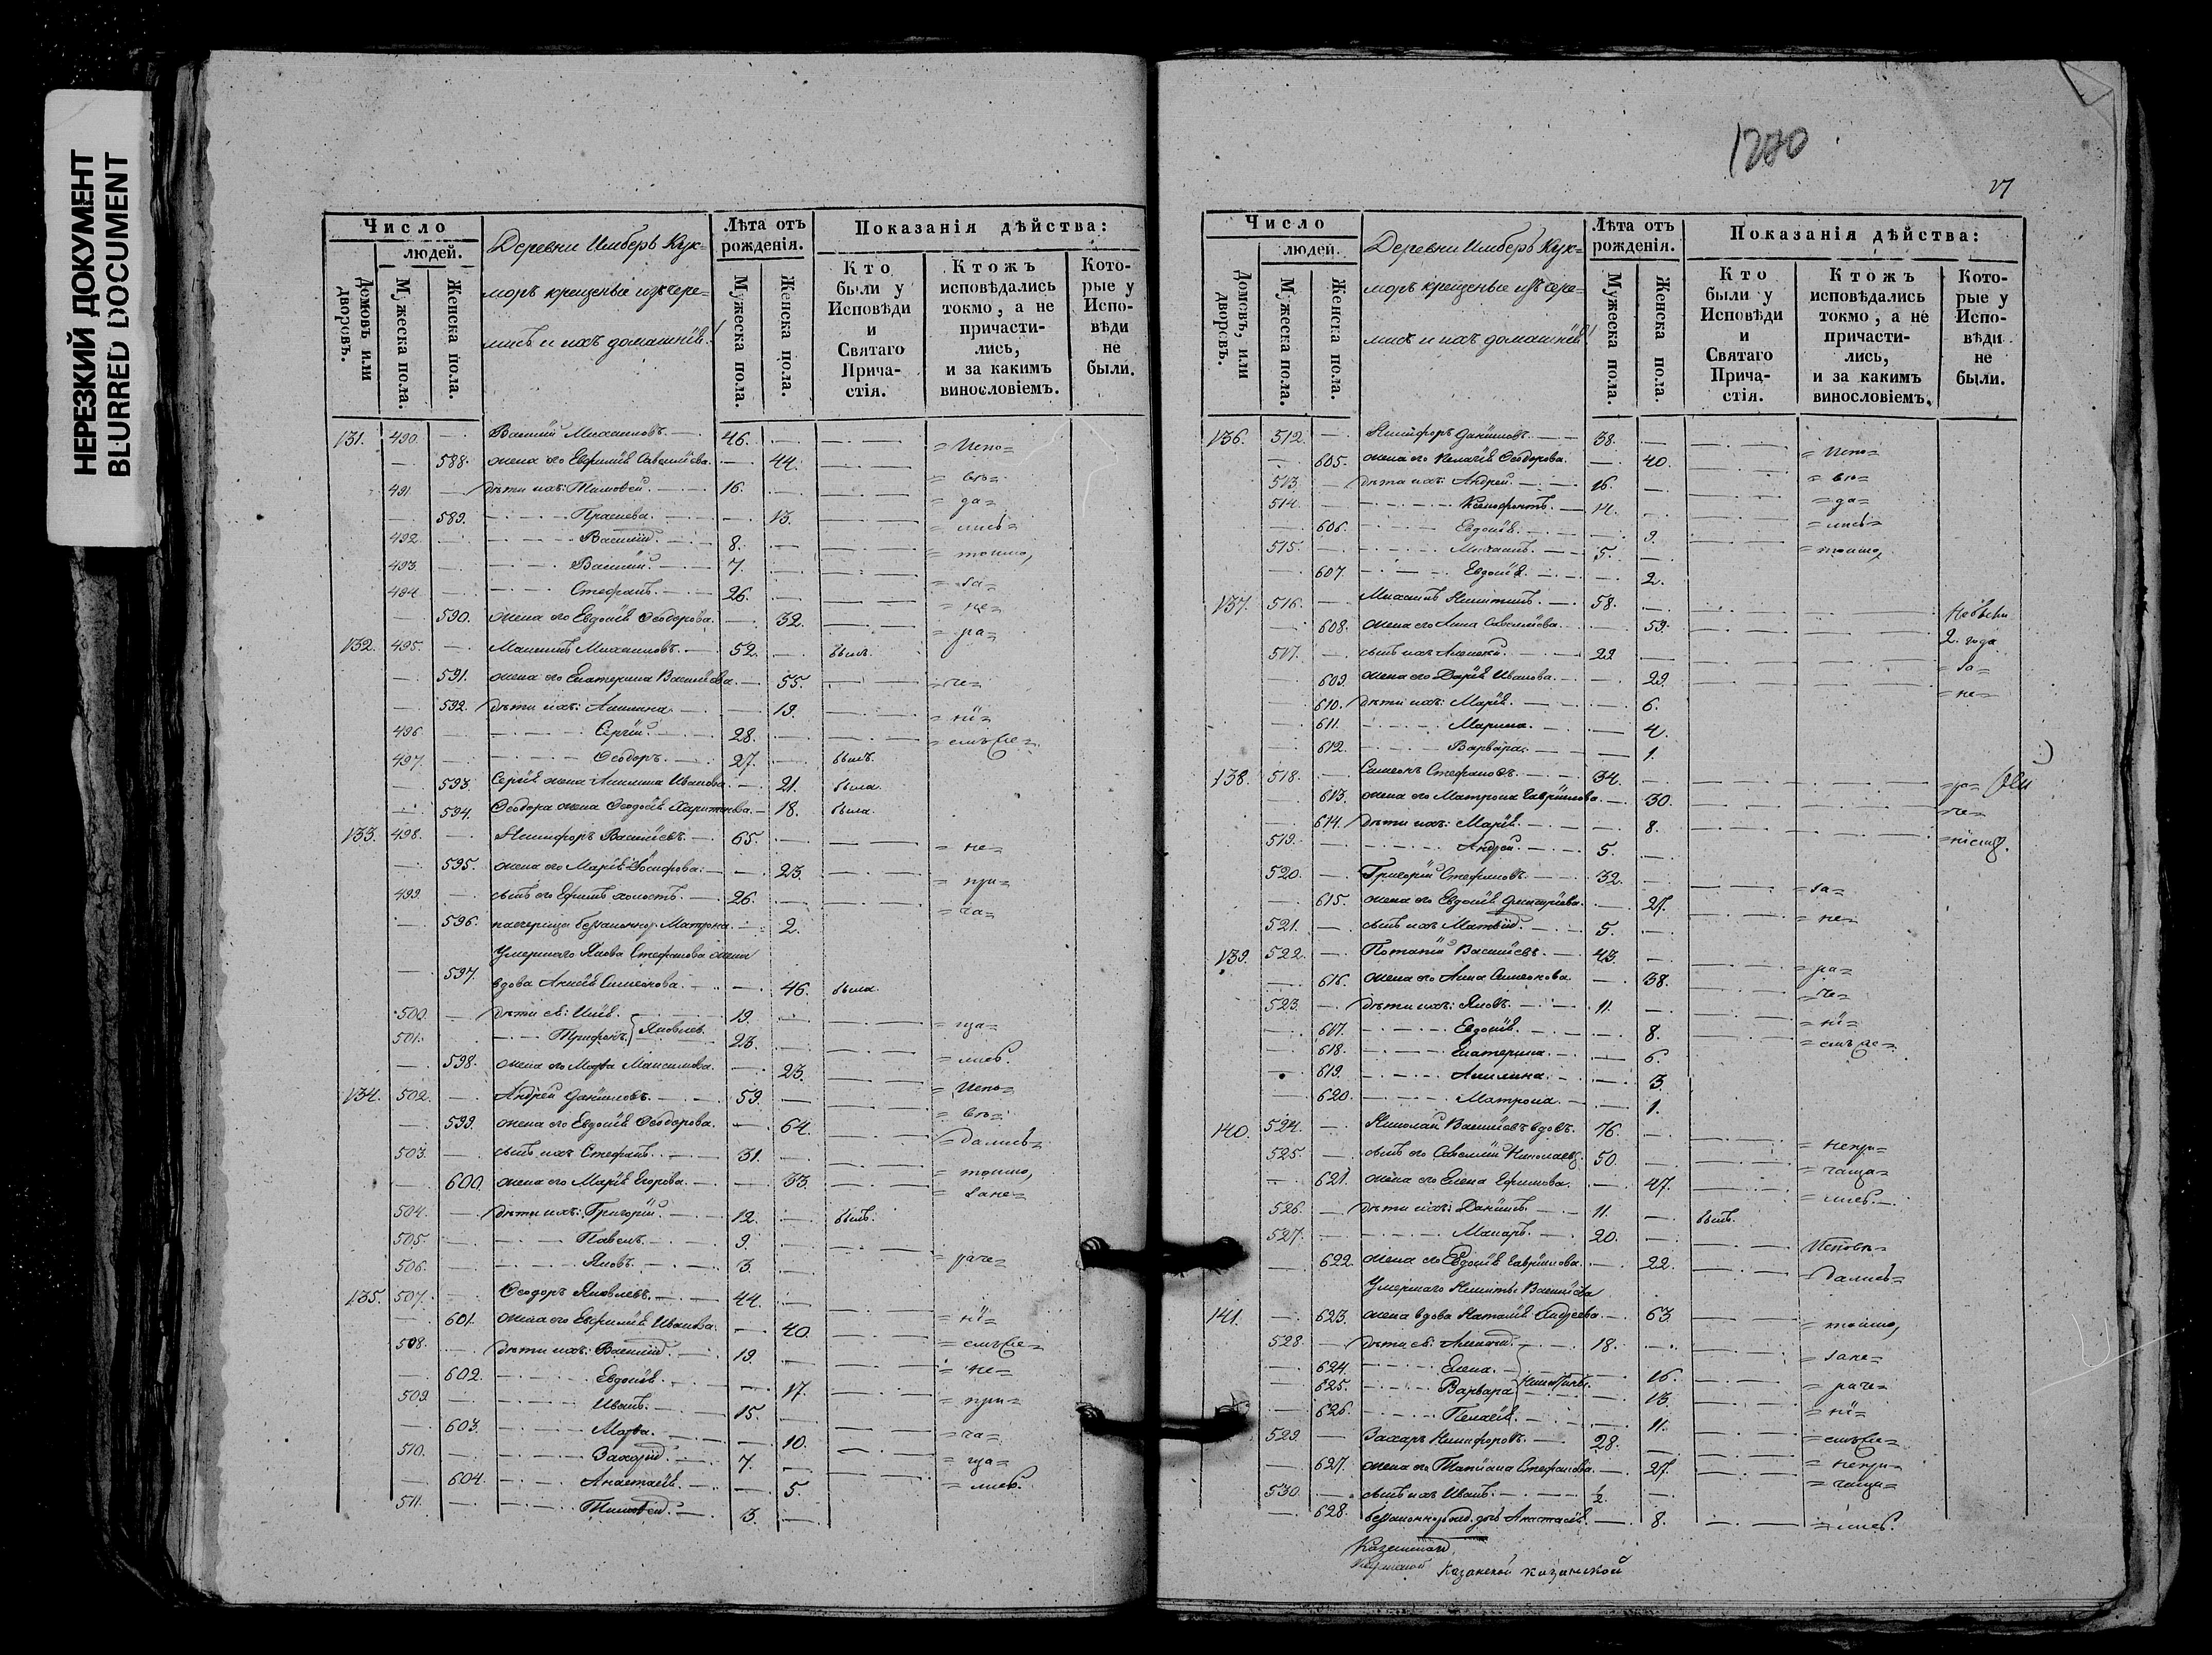 НЕРЕЗКИЙ ДОКУМЕНТ
BLURRED DOCUMENT
Число
людей.
Домовъ или дворовъ.
Мужеска пола.
Женска пола.
Деревни Имберь Кук=
моръ крещеные изъ чере=
мисъ и ихъ домашнія
Лѣта отъ рожденія.
Мужеска пола.
Женска пола.
Показанія дѣйства:
Кто были у Исповѣди и Святаго Прича-стія.
Ктожъ исповѣдались токмо, а не причасти-лись, и за какимъ винословіемъ.
Кото-рые у Испо-вѣди не были.
131. 490. Василій Михаиловъ. 46. = Испо=
588. жена его Евфимія Савеліева. 44. = вѣ=
491. дѣти ихъ: Тимофей. 16. = да=
589. 13. = лись=
492. Василій. 8. = токмо,
493. Василій. 7. = за=
494. Стефанъ. 26. = не=
590. жена его Евдокія Ѳеодорова. 32. = ра=
132. 495. Михаиловъ. 52. былъ.
591. жена его Екатерина Василіева. 55. = че=
592. дѣти ихъ: Акилина. 19. = ні=
496. Сергій. 28.
497. Ѳеодоръ. 27. былъ.
593. Сергія жена Акилина Иванова. 21. была.
594. Ѳеодора жена Ѳеодосія Харитонова. 18. была.
133. 498. Никифоръ Василіевъ. 65. = не=
595. жена его Марія Іосифова. 23. = при=
499. сынъ его Ефимъ холостъ. 26. = ча=
596. Матрона. 2.
Умершаго Якова Стефанова жена
597. вдова Симеонова. 46. была.
500. дѣти ея: Илія. 19. = ща=
501. Трифонъ. Яковлев. 23. = лись.
598. жена его Марѳа Максимова. 23. = Испо=
134. 502. Андрей Даниловъ. 59. = вѣ=
599. жена его Евдокія Ѳеодорова. 64. = дались=
503. сынъ ихъ Стефанъ. 31. = токмо,
600. жена его Марія Егорова. 33. = зане=
504. дѣти ихъ: Григорій. 12. былъ.
505. Павелъ. 9.
506. Яковъ. 3. = раче=
135. 507. Ѳеодоръ Яковлевъ. 44.
601. жена его Евфимія Иванова. 40. = ні=
508. дѣти ихъ: Василій. 19.
602. Евдокія. 17. = не=
509. Иванъ. 15. = при=
603. Марѳа. 10. = ча=
510. Захарій. 7. = ща=
604. Анастасія. 5. = лись.
511. Тимофей. 3.
1280
Число
людей.
Домовъ, или дворовъ.
Мужеска пола.
Женска пола.
Деревни Имберь Кук=
моръ крещеные изъ чере=
мисъ и ихъ домашнія
Лѣта отъ рожденія.
Мужеска пола.
Женска пола.
Показанія дѣйства:
Кто были у Исповѣди и Святаго Прича-стія.
Ктожъ исповѣдались токмо, а не причасти-лись, и за какимъ винословіемъ.
Кото-рые у Испо-вѣди не были.
136. 512. Никифоръ Даниловъ. 38. = Испо=
605. жена его Пелагія Ѳеодорова. 40. = вѣ=
513. дѣти ихъ: Андрей. 16. = да=
514. Ксенофонтъ. 14. = лись=
606. Евдокія. 9. = токмо,
515. Михаилъ. 5.
607. Евдокія. 2.
137. 516. Михаилъ Никитинъ. 58.
608. жена его Анна Савеліева. 59. 2. года
517. сынъ ихъ Алексей. 22. = за=
609. жена его Дарія Иванова. 29. = не=
610. дѣти ихъ: Марія. 6.
611. Марина. 4.
612. Варвара. 1.
138. 518. Симеонъ Стефановъ. 34. = ра=
613. жена его Матрона Гавріилова. 30. = че=
614. дѣти ихъ: Марія. 8.
519. Андрей. 5.
520. Григорій Стефановъ. 32. = за=
615. жена его Евдокія Димитріева. 27. = не=
521. сынъ ихъ Матвѣй. 5.
139. 522. Потапій Василіевъ. 43. = ра=
616. жена его Анна Симеонова. 38. = че=
523. дѣти ихъ: Яковъ. 11. = ні=
617. Евдокія. 8.
618. Екатерина. 6.
619. Акилина. 3.
620. Матрона. 1.
140. 524. Николай Василіевъ вдовъ. 76. = непри=
525. сынъ его Савелій Николаевъ. 50. = чаща=
621. жена его Елена Ефимова. 47. = лись.
526. дѣти ихъ: Даніилъ. 11. былъ.
527. Макаръ. 20. Исповѣ=
622. жена его Евдокія Гавріилова. 22. = дались=
Умершаго Никиты Василіева
141. 623. жена вдова Наталія Андреева. 63. = токмо,
528. дѣти ея: Алексей. 18. = зане=
624. Елена. Никитины. 16. = раче=
625. Варвара 13. = ні=
626. Пелагія. 11.
529. Захаръ Никифоровъ. 28. = непри=
627. жена его Татіана Стефанова. 27. = чаща=
530. сынъ ихъ Иванъ. ½.
628. дочь Анастасія. 8. = лись.
Казанской казанской